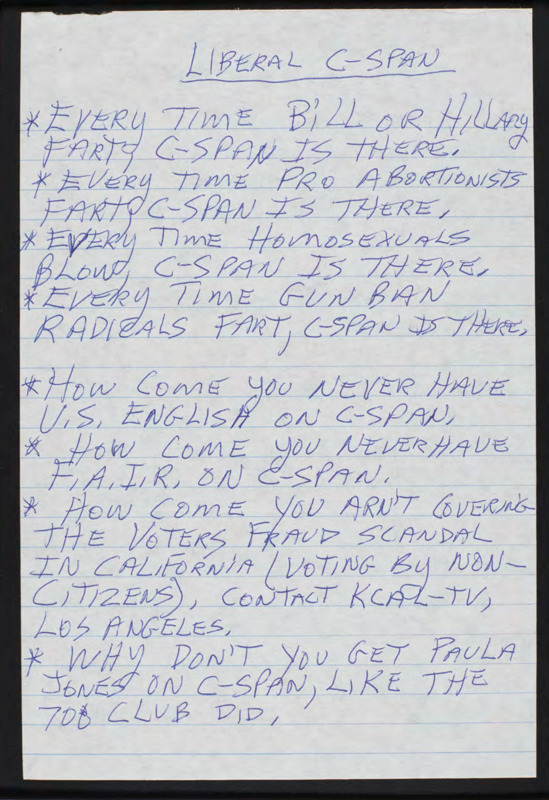 LIBERAL C-SPAN
* EVERY TIME BILL OR HILLARY
FARTS C-SPAN IS THERE.
* EVERY TIME PRO ABORTIONISTS
FARTS C-SPAN IS THERE.
* EVERY TIME HOMOSEXUALS
BLOW, C-SPAN IS THERE.
* EVERY TIME GUN BAN
RADICALS FART, C-SPAN IS THERE.
* HOW COME YOU NEVER HAVE
U.S. ENGLISH ON C-SPAN.
* HOW COME YOU NEVER HAVE
F.A.I.R. ON C-SPAN.
* HOW COME YOU ARN'T COVERING
THE VOTERS FRAUD SCANDAL
IN CALIFORNIA (VOTING BY NON-
CITIZENS), CONTACT KCAL-TV,
LOS ANGELES.
* WHY DON'T YOU GET PAULA
JONES ON C-SPAN, LIKE THE
700 CLUB DID.